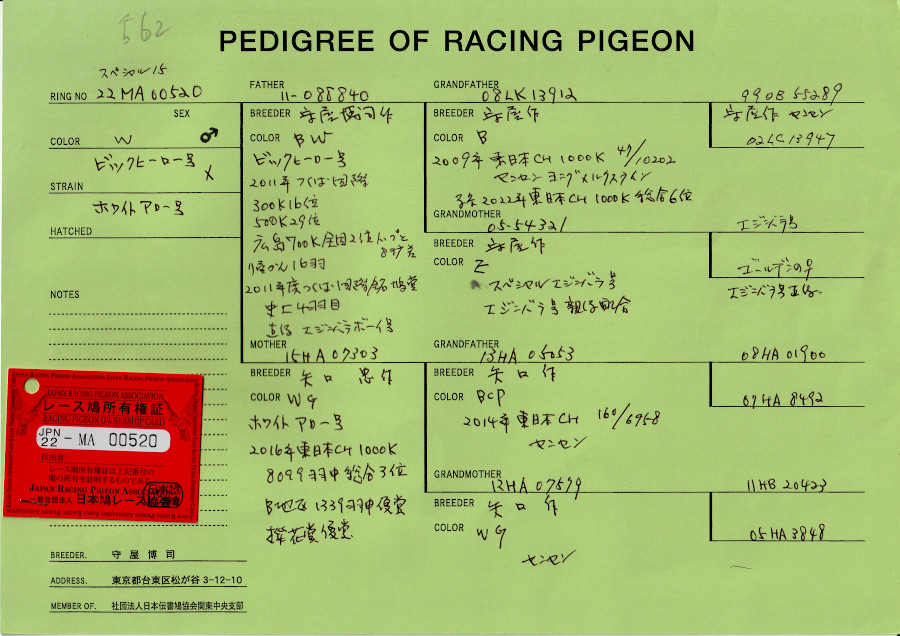 562
PEDIGREE OF RACING PIGEON
スペシャル15
RING NO 22MA00520
SEX ♂
COLOR W
ビックヒーロー号
X
STRAIN
ホワイトアロー号
HATCHED
NOTES
JAPAN RACING PIGEON ASSOCIATION
レース鳩所有権証
RACING PIGEON OWNERSHIP CARD
JPN 22 - MA 00520
作出者
レース鳩所有権証は上記番号の
鳩の所有を証明するものである。
JAPAN RACING PIGEON ASSOCIATION
一般社団法人 日本鳩レース協会
BREEDER. 守屋 博司
ADDRESS. 東京都台東区松が谷 3-12-10
MEMBER OF. 社団法人日本伝書鳩協会関東中央支部
FATHER
11-088840
BREEDER 守屋博司作
COLOR BW
ビックヒーロー号
2011年つくば国際
300K16位
500K29位
広島700K全国2位トップと
帰かん16羽
2011年度つくば国際銘鳩賞
史上4羽目
直仔 エジンバラボーイ号
MOTHER
15HA07303
BREEDER 矢口 忠作
COLOR WG
ホワイトアロー号
2016年東日本CH1000K
8099羽中総合3位
B地区1339羽中優賞
GRANDFATHER
08LK13912
BREEDER 守屋作
COLOR B
2009年東日本CH1000K 47/10202
ヤンセン ヨングメルクスタイン
孫2022年東日本CH1000K総合6位
GRANDMOTHER
05-54321
BREEDER 守屋作
COLOR
スペシャルエジンバラ号
エジンバラ号 親仔配合
GRANDFATHER
13HA05053
BREEDER 矢口作
COLOR BCP
2014年東日本CH 160/6958
ヤンセン
GRANDMOTHER
12HA07599
BREEDER 矢口作
COLOR WG
ヤンセン
99OB55289
守屋作 ヤンセン
02LC13947
エジンバラ号
ゴールデンの♀
エジンバラ号直仔
08HA01900
07HA8492
11HB20423
05HA3848